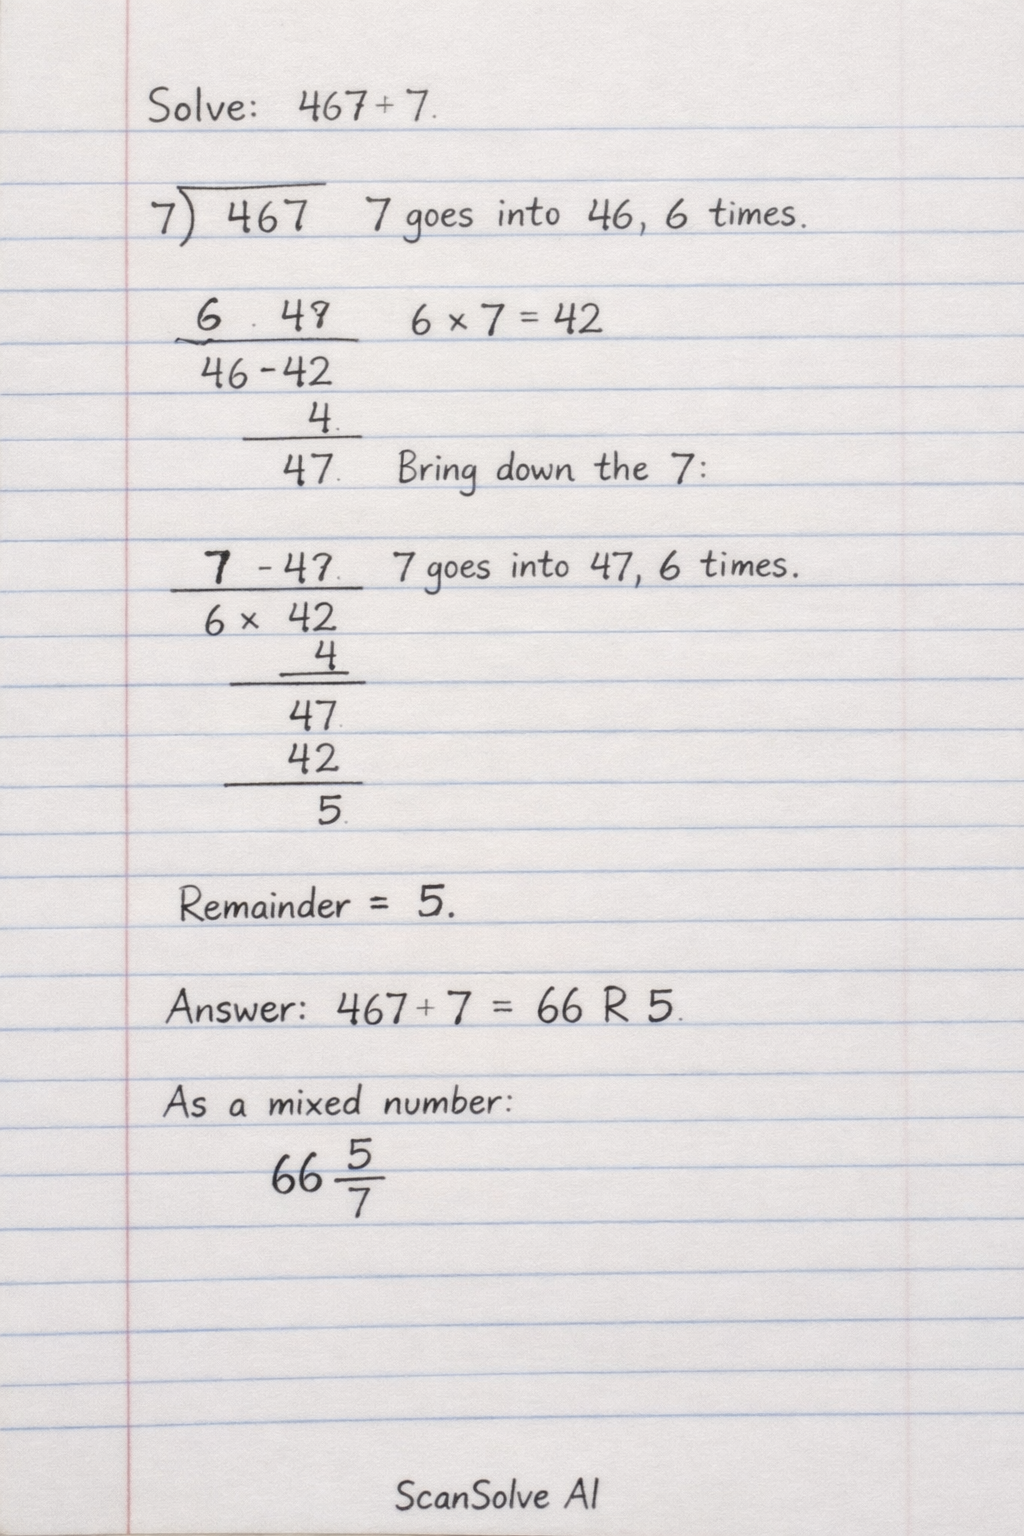 Solve: 467 + 7.
7) 467 7 goes into 46, 6 times.
6 . 47 6 × 7 = 42
46 - 42
4.
47. Bring down the 7:
7 - 47. 7 goes into 47, 6 times.
6 × 42
4
47.
42
5.
Remainder = 5.
Answer: 467 + 7 = 66 R 5.
As a mixed number:
66 5/7
ScanSolve AI